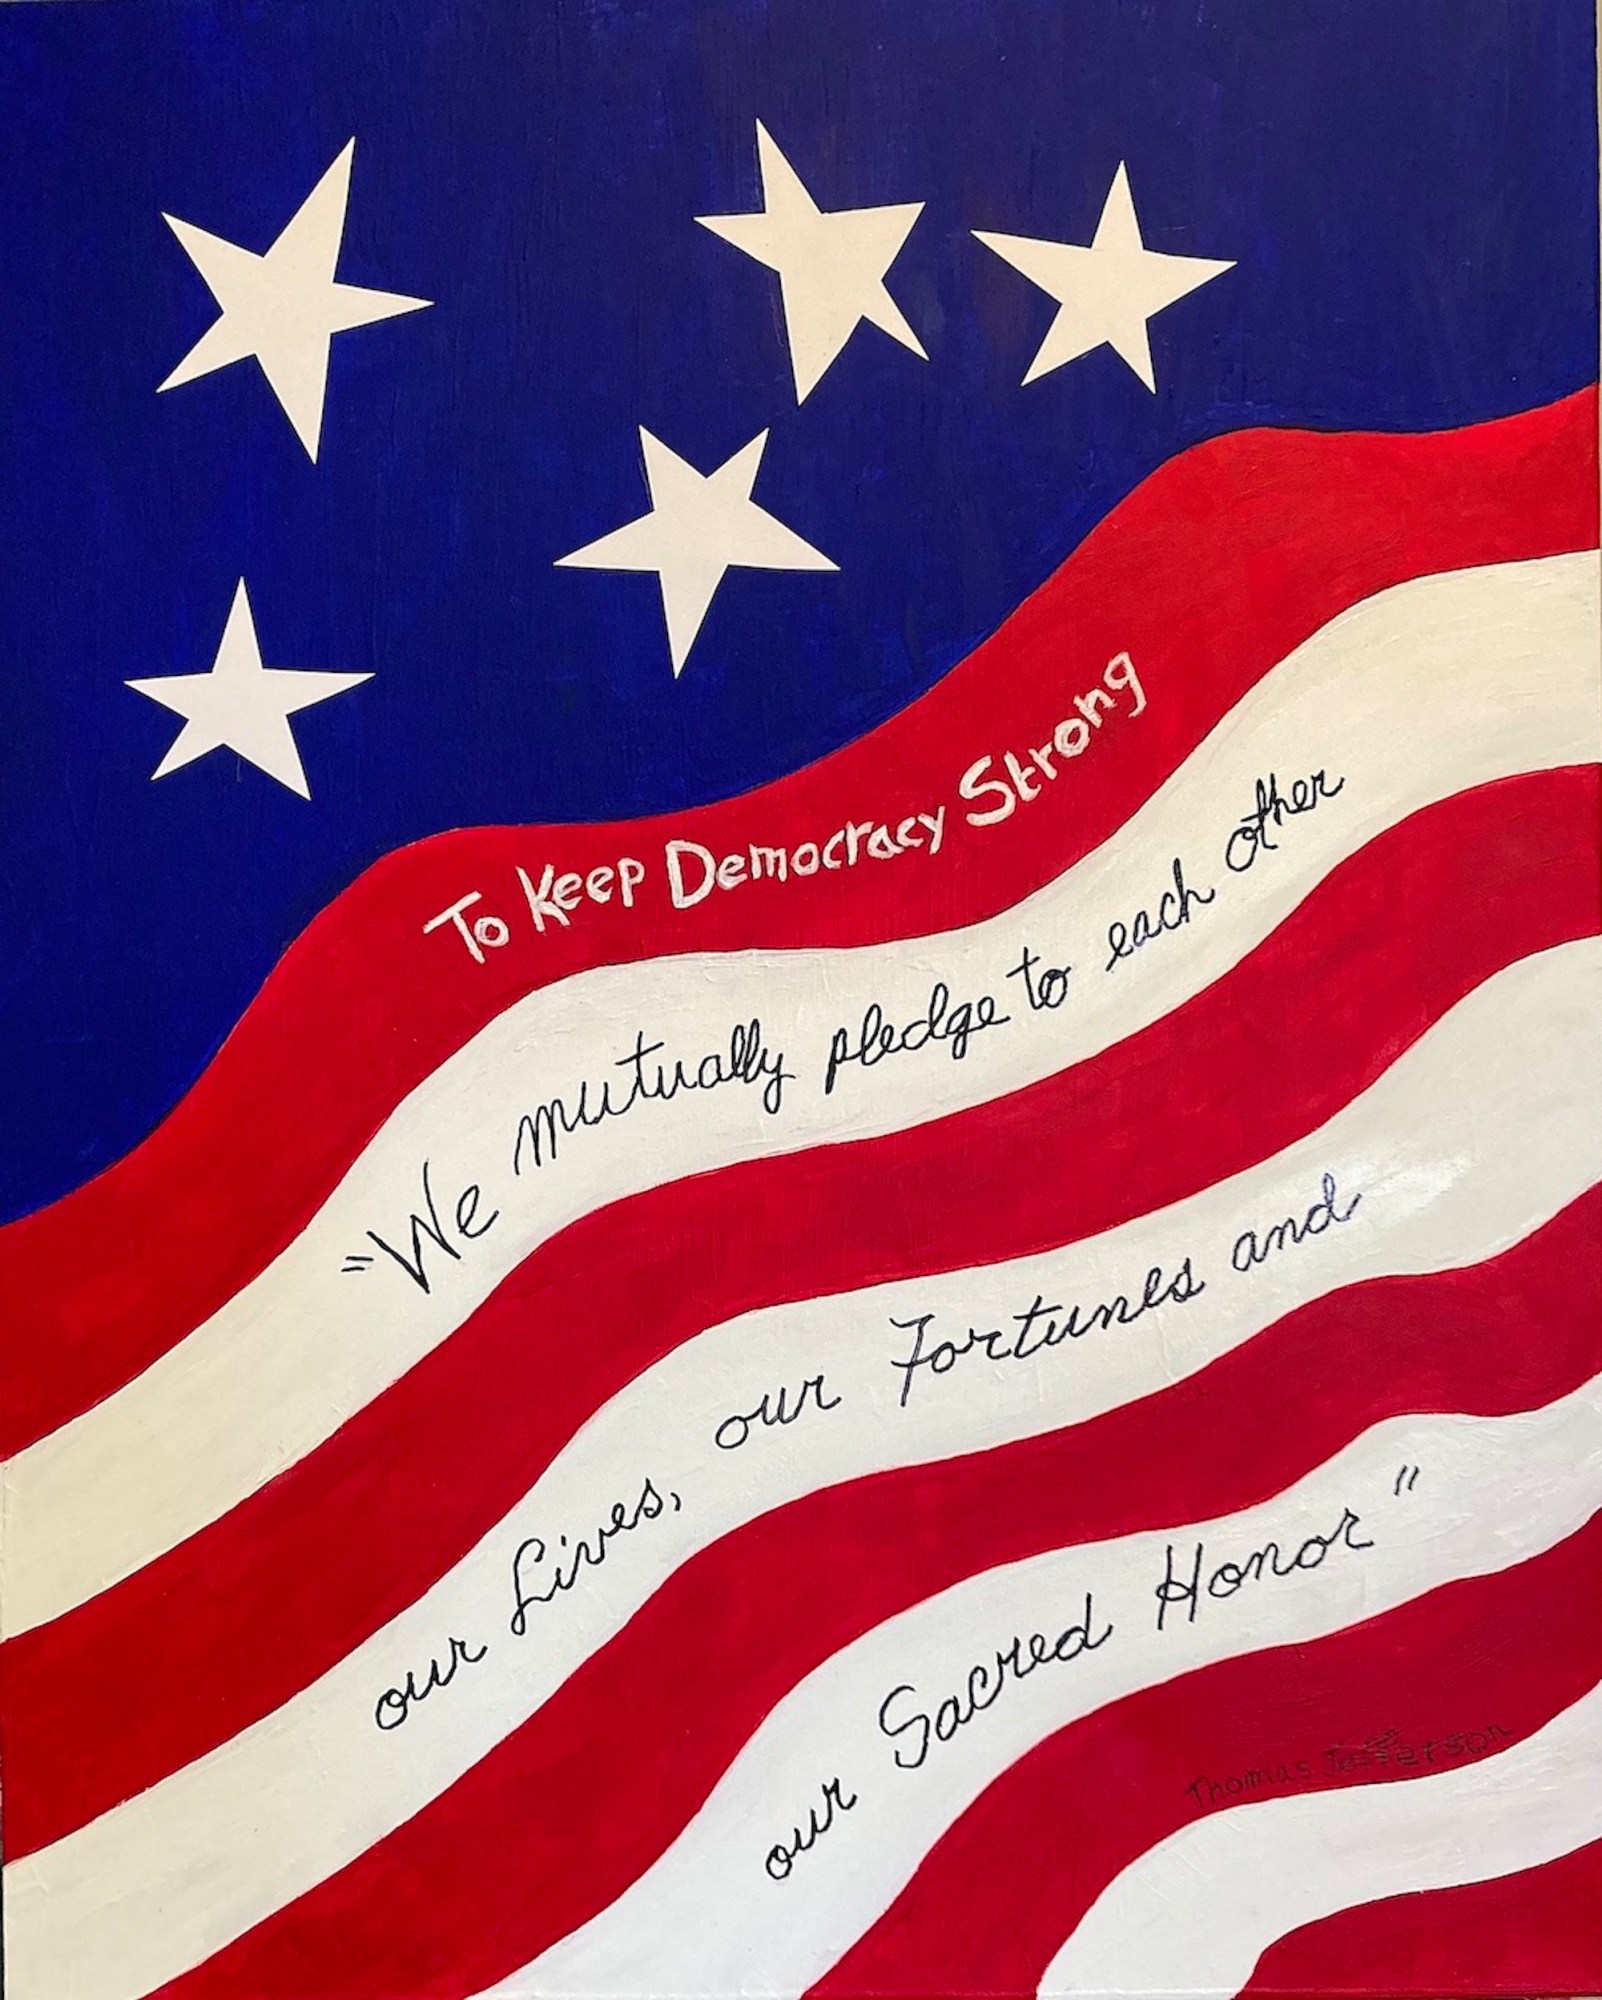 To Keep Democracy Strong
"We mutually pledge to each other
our Lives, our Fortunes and
our Sacred Honor"
Thomas Jefferson